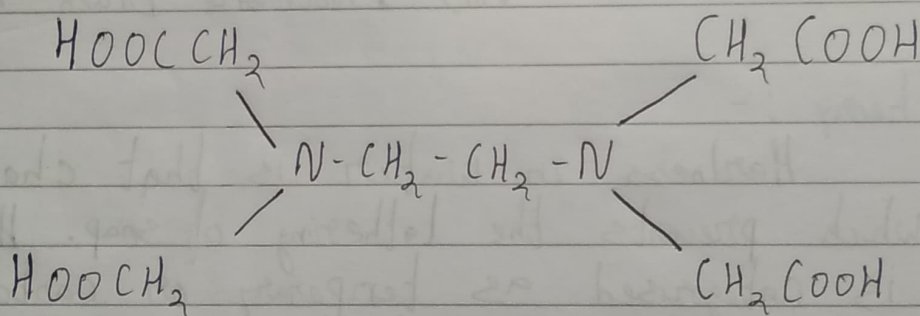 HOOCCH₂ CH₂ COOH
N-CH₂-CH₂-N
HOOCH₂ CH₂ COOH